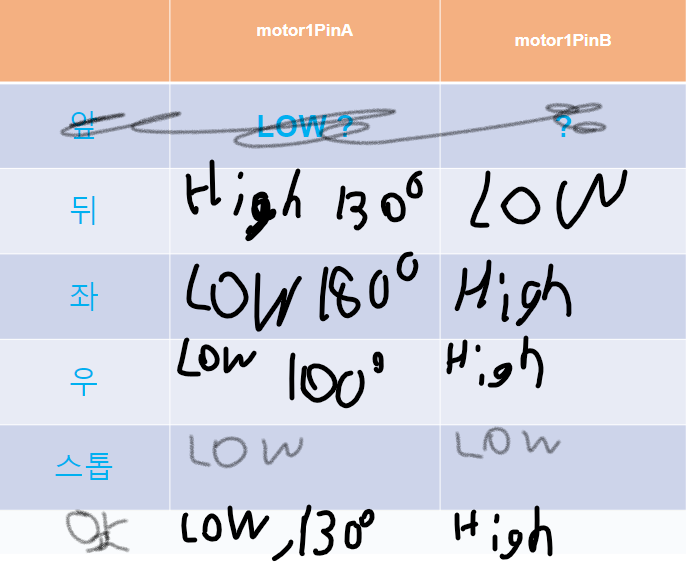 motor1PinA motor1PinB
앞 LOW ? ?
뒤 High 130° LOW
좌 LOW 180° High
우 LOW 100° High
스톱 LOW LOW
앞 LOW, 130° High